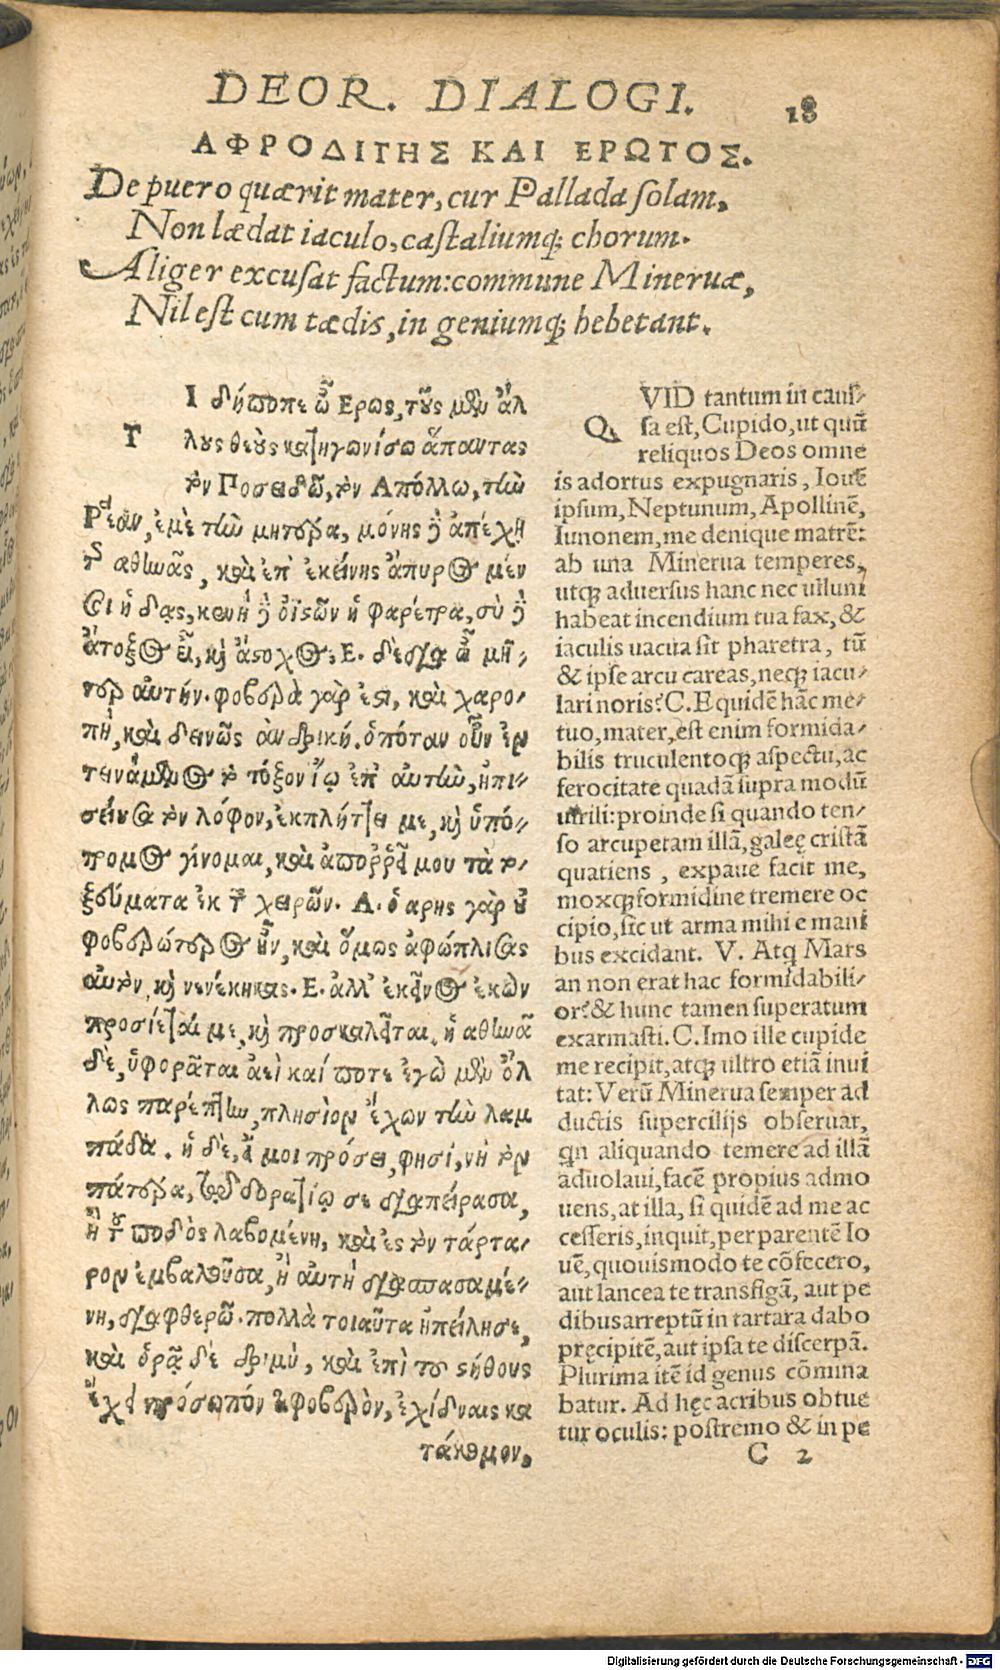 DEOR. DIALOGI. 18
ΑΦΡΟΔΙΤΗΣ ΚΑΙ ΕΡΩΤΟΣ.
De puero quærit mater, cur Pallada ſolam,
Non lædat iaculo, caſtaliumq; chorum.
Aliger excuſat factum: commune Mineruæ,
Nil eſt cum tædis, in geniumq; hebetant.
ΤΙ δήποτε ὦ Ερως, τοὺς μὲν ἄλ
λους θεοὺς κατηγωνίσω ἅπαντας
τὸν Ποσειδῶ, τὸν Απόλλω, τὴν
Ρέαν, ἐμὲ τὴν μητέρα, μόνης δὲ ἀπέχῃ
τῆς αθηνᾶς, καὶ ἐπ' ἐκείνης ἄπυρος μέν
σοι ἡ δᾲς, κενὴ δὲ ὀϊστῶν ἡ φαρέτρα, σὺ δὲ
ἄτοξος εἶ, καὶ ἄστοχος; Ε. δέδια ὦ μῆ-
τερ αυτήν. φοβερὰ γάρ ἐστι, καὶ χαρο-
πὴ, καὶ δεινῶς ἀνδρική. ὁπόταν οὖν ἐν
τεινάμενος τὸ τόξον ἴω ἐπ' αυτὴν, ἐπι-
σείουσα τὸν λόφον, ἐκπλήττει με, καὶ ὑπό-
τρομος γίνομαι, καὶ ἀποῤῥεῖ μου τὰ το-
ξεύματα ἐκ τῶν χειρῶν. Α. ὁ αρης γὰρ οὐ
φοβερώτερος ἦν, καὶ ὅμως ἀφώπλισας
αυτὸν, καὶ νενίκηκας. Ε. ἀλλ' ἐκεῖνος ἑκὼν
προσίεταί με, καὶ προσκαλεῖται, ἡ αθηνᾶ
δὲ, ὑφορᾶται ἀεὶ καί ποτε ἐγὼ μὲν ἄλ
λως παρέπτην, πλησίον ἔχων τὴν λαμ
πάδα. ἡ δὲ, εἴ μοι πρόσει, φησί, νὴ τὸν
πατέρα, τῷ δορατίῳ σε διαπείρασα,
ἢ τοῦ ποδὸς λαβομένη, καὶ ἐς τὸν τάρτα-
ρον ἐμβαλοῦσα, ἢ αυτὴ διασπασαμέ-
νη, διαφθερῶ. πολλὰ τοιαῦτα ἠπείλησε,
καὶ ὁρᾷ δὲ δριμὺ, καὶ ἐπὶ τοῦ στήθους
ἔχει πρόσωπόν τι φοβερὸν, ἐχίδναις κα
τάκομον,
QVID tantum in cauſ-
ſa eſt, Cupido, ut quũ
reliquos Deos omne
is adortus expugnaris, Iouẽ
ipſum, Neptunum, Apollinẽ,
Iunonem, me denique matrẽ:
ab una Minerua temperes,
utq; aduerſus hanc nec ullum
habeat incendium tua fax, &
iaculis uacua ſit pharetra, tũ
& ipſe arcu careas, neq; iacu-
lari noris? C. Equidẽ hãc me-
tuo, mater, eſt enim formida-
bilis truculentoq; aſpectu, ac
ferocitate quadã ſupra modũ
uirili: proinde ſi quando ten-
ſo arcu petam illã, galeę criſtã
quatiens, expaue facit me,
moxq; formidine tremere oc
cipio, ſic ut arma mihi e mani
bus excidant. V. Atq Mars
an non erat hac formidabili-
or? & hunc tamen ſuperatum
exarmaſti. C. Imo ille cupide
me recipit, atq; ultro etiã inui
tat: Verũ Minerua ſemper ad
ductis ſupercilijs obſeruat,
qn aliquando temere ad illã
aduolaui, facẽ propius admo
uens, at illa, ſi quidẽ ad me ac
ceſſeris, inquit, per parentẽ Io
uẽ, quouismodo te cõfecero,
aut lancea te transfigã, aut pe
dibus arreptũ in tartara dabo
pręcipitẽ, aut ipſa te diſcerpã.
Plurima itẽ id genus cõmina
batur. Ad hęc acribus obtue
tur oculis: poſtremo & in pe
C 2
Digitalisierung gefördert durch die Deutsche Forschungsgemeinschaft - DFG